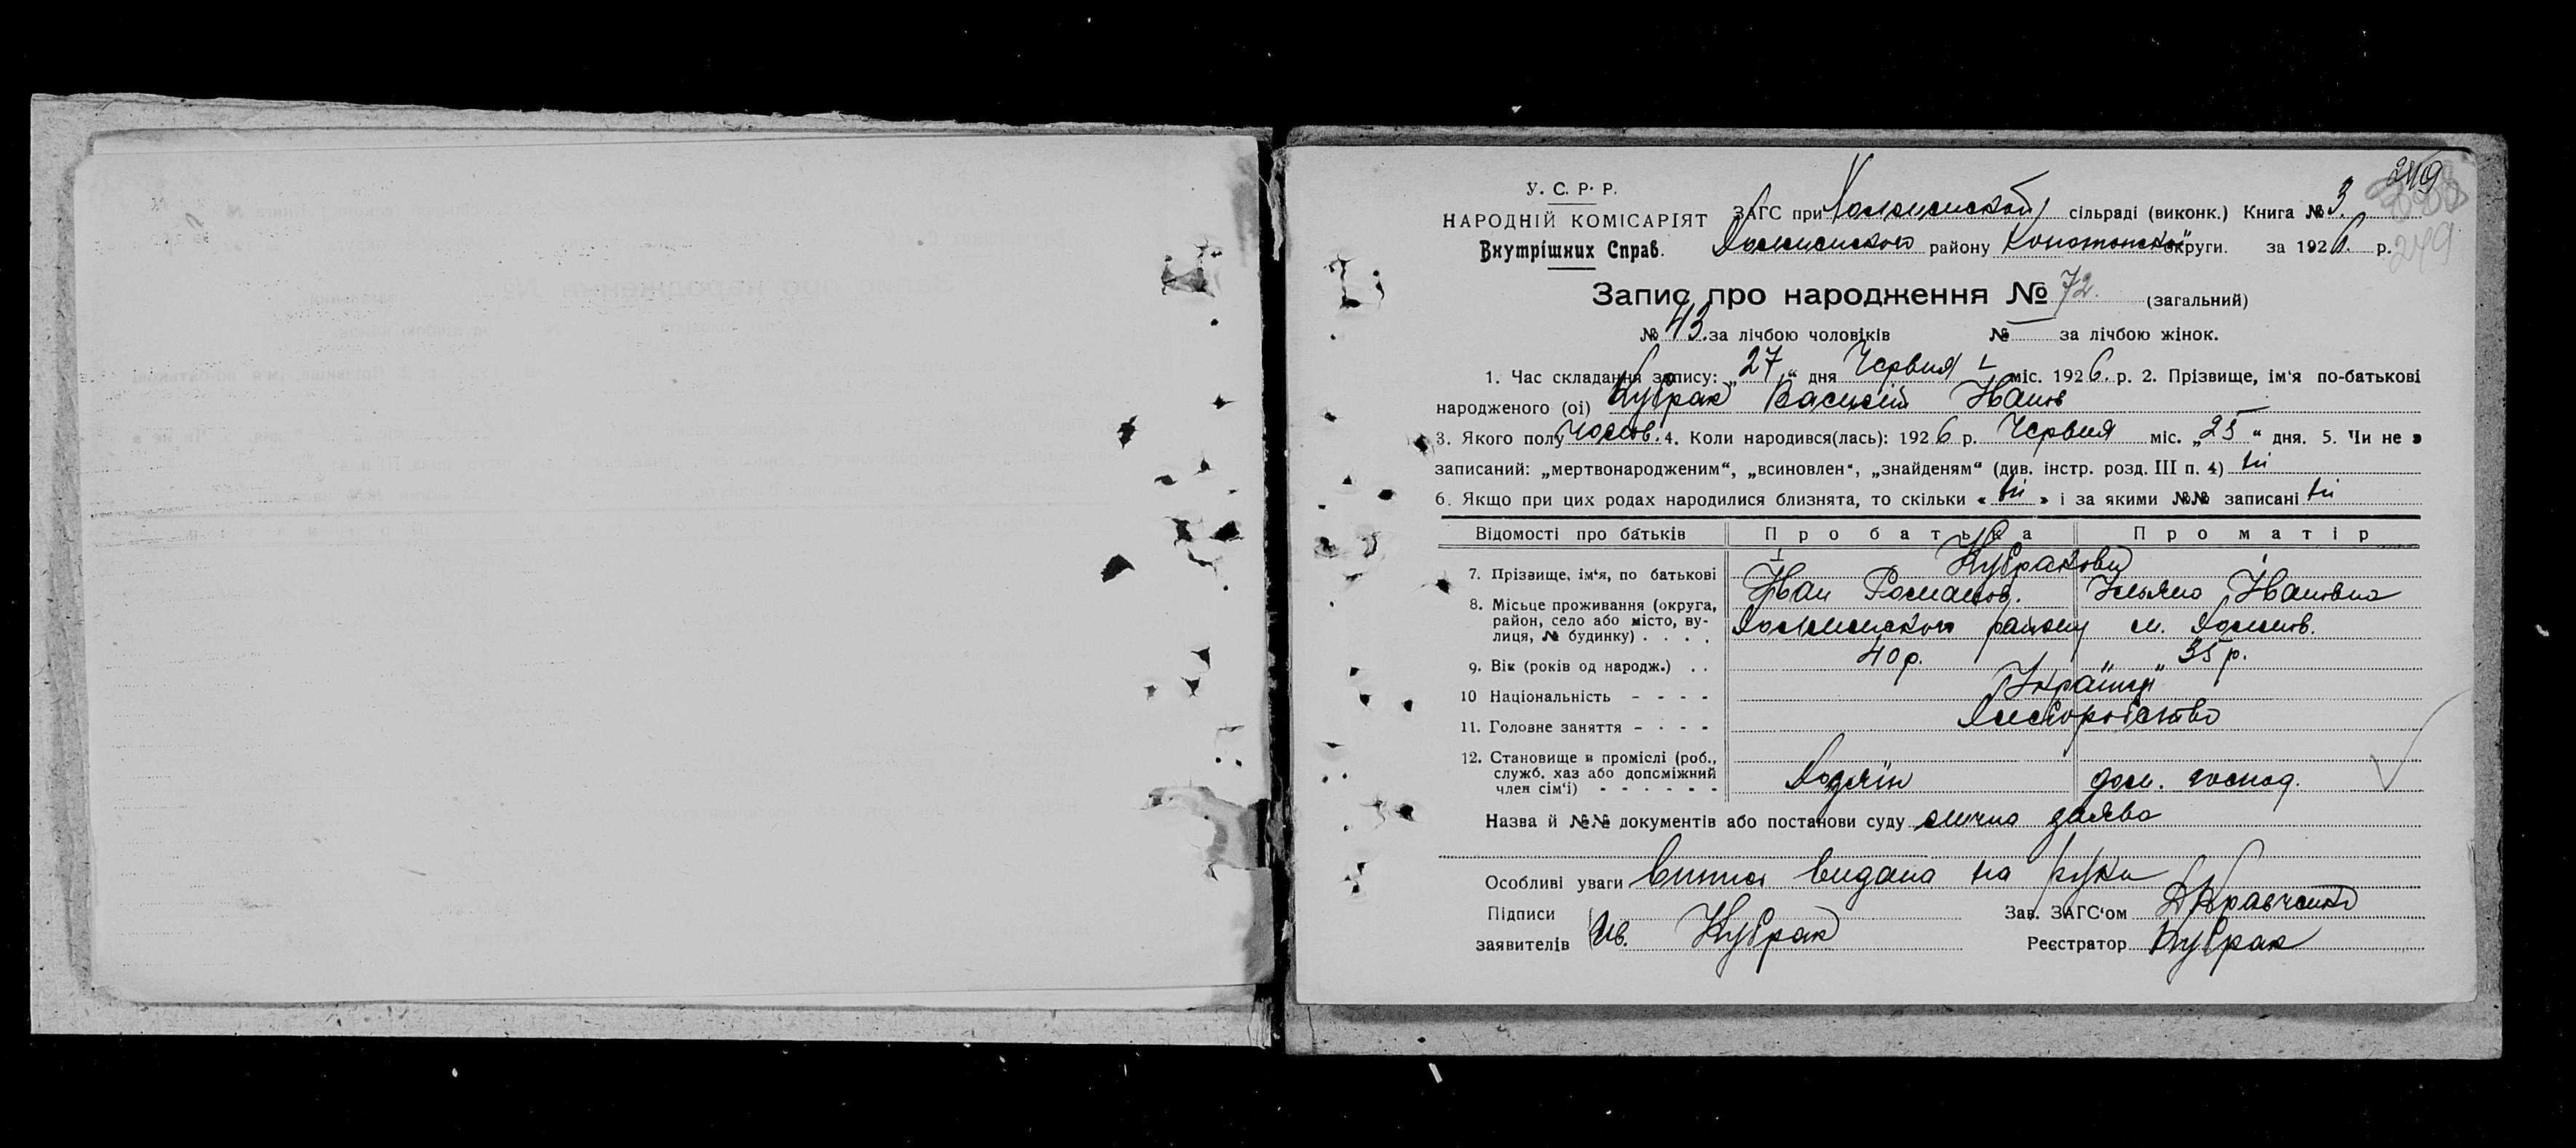 249
У. С. Р. Р.
НАРОДНІЙ КОМІСАРІЯТ
Внутрішних Справ.
ЗАГС при сільраді (виконк.) Книга № 3.
району Конотопської округи. за 1926. р.
249
Запис про народження № 72. (загальний)
№ 43. за лічбою чоловіків № — за лічбою жінок.
1. Час складання запису: „27“ дня Червня міс. 1926. р. 2. Прізвище, ім‘я по-батькові
народженого (ої) Кубрак Василій Іванов
3. Якого полу Чолов. 4. Коли народився(лась): 1926 р. Червня міс. „25“ дня. 5. Чи не є
записаний: „мертвонародженим“, „всиновлен“, „знайденям“ (див. інстр. розд. III п. 4) ні
6. Якщо при цих родах народилися близнята, то скільки « ні » і за якими №№ записані ні
Відомості про батьків Про батька Про матір
7. Прізвище, ім‘я, по батькові Кубракови
Іван Романов. Уляна Івановна
8. Місьце проживання (округа,
район, село або місто, ву-
лиця, № будинку) . . . . району м.
9. Вік (років од народж.) . . 40 р. „ „ 35 р.
10 Національність - - - - Українці
11. Головне заняття - - - - Хліборобство
12. Становище в промислі (роб.,
служб. хаз або допоміжний
член сім‘ї) - - - - - - Хозяїн дом. господ.
Назва й №№ документів або постанови суду лична заява
Особливі уваги Випись видана на руки
Підписи
заявителів Ів. Кубрак
Зав. ЗАГС‘ом Д Кравченко
Реєстратор Кубрак